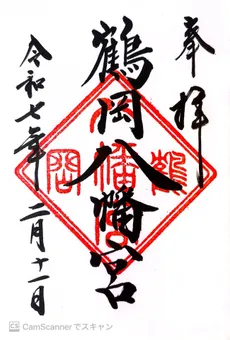 奉拝
鶴岡八幡宮
令和七年二月十一日
鶴
八幡宮
岡
CamScannerでスキャン